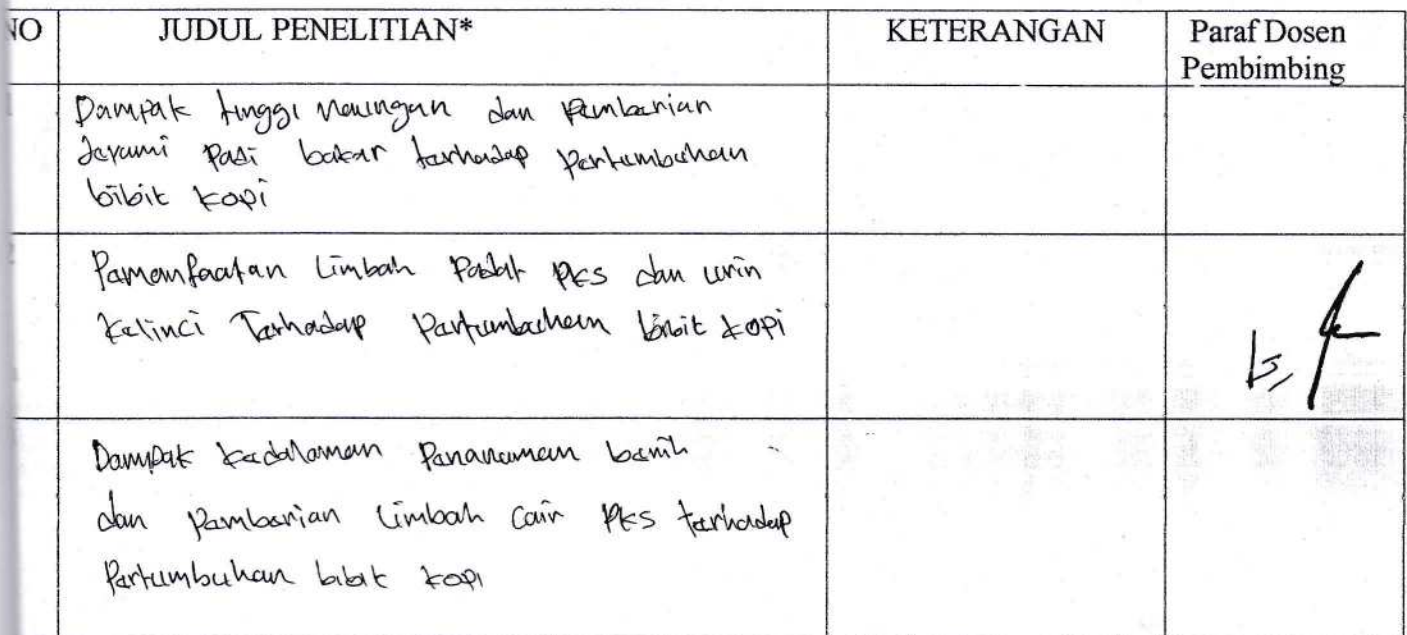 NO JUDUL PENELITIAN* KETERANGAN Paraf Dosen
Pembimbing
Dampak tinggi naungan dan pemberian
Jerami padi bakar terhadap pertumbuhan
bibit kopi
Pemanfaatan Limbah Padat PKS dan urin
Kelinci Terhadap Pertumbuhan bibit kopi
Dampak kedalaman Penanaman benih
dan pemberian Limbah Cair PKS terhadap
Pertumbuhan bibit kopi